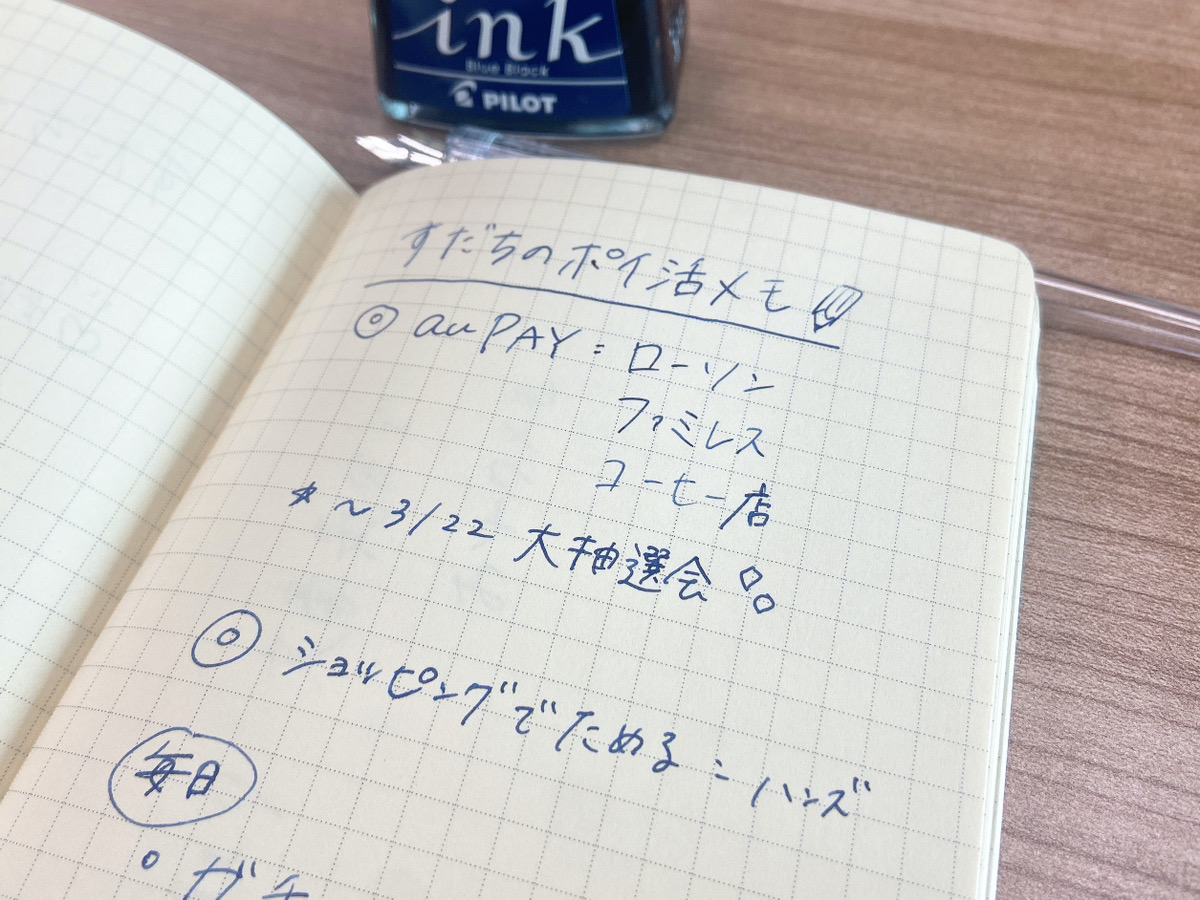 ink
Blue Black
PILOT
すだちのポイ活メモ
◎ au PAY : ローソン
ファミレス
コーヒー店
* ~3/22 大抽選会
◎ ショッピングでためる : ハンズ
毎日
・ガチ